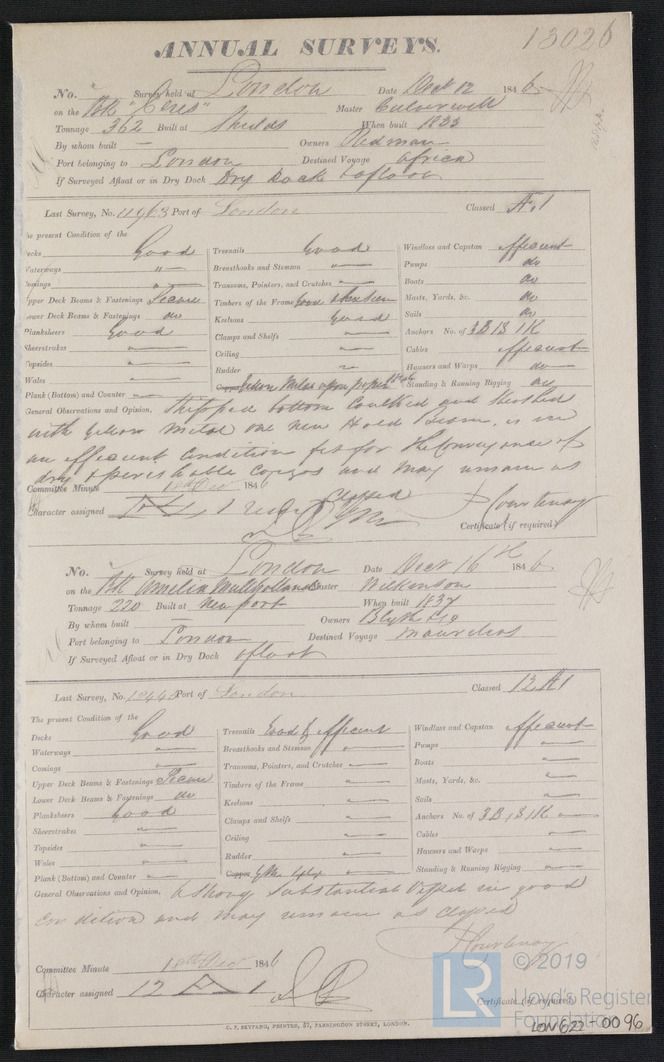 13026
ANNUAL SURVEYS.
No. Survey held at London Date Decr 12 1846
on the Bk "Ceres" Master Culverwell
Tonnage 362 Built at Shields When built 1833
By whom built — Owners Redman
Port belonging to London Destined Voyage Africa
If Surveyed Afloat or in Dry Dock Dry Dock & afloat
Last Survey, No. 11963 Port of London Classed Æ 1
The present Condition of the
Decks Good Treenails Good Windlass and Capstan Efficient
Waterways " Breasthooks and Stemson " Pumps do
Comings " Transoms, Pointers, and Crutches " Boats do
Upper Deck Beams & Fastenings Secure Timbers of the Frame Good where seen Masts, Yards, &c. do
Lower Deck Beams & Fastenings do Keelsons Good Sails do
Planksheers Good Clamps and Shelfs " Anchors No. of 3B, 1S, 1K
Sheerstrakes " Ceiling " Cables Efficient
Topsides " Rudder " Hawsers and Warps do
Wales " Copper Yellow Metal upon
Plank (Bottom) and Counter " Standing & Running Rigging do
General Observations and Opinion, Stripped bottom Caulked and Sheathed
with Yellow Metal one new Hold Beam, is in
an efficient Condition fit for the Conveyance of
dry & perishable Cargos and may remain as
Classed
Committee Minute 18th Decr 1846
Character assigned Æ 1
J Courtenay
Certificate (if required)
No. Survey held at London Date Decr 16th 1846
on the Bk Amelia Mulholland Master Wilkinson
Tonnage 220 Built at Newport When built 1837
By whom built — Owners Blyth & Co
Port belonging to London Destined Voyage Mauritius
If Surveyed Afloat or in Dry Dock afloat
Last Survey, No. Port of London Classed 12 A 1
The present Condition of the
Decks Good Treenails Good & efficient Windlass and Capstan Efficient
Waterways " Breasthooks and Stemson " Pumps "
Comings " Transoms, Pointers, and Crutches " Boats "
Upper Deck Beams & Fastenings Secure Timbers of the Frame " Masts, Yards, &c. "
Lower Deck Beams & Fastenings do Keelsons " Sails "
Planksheers Good Clamps and Shelfs " Anchors No. of 3B, 1S, 1K
Sheerstrakes " Ceiling " Cables "
Topsides " Rudder " Hawsers and Warps "
Wales " Copper Y.M.
Plank (Bottom) and Counter " Standing & Running Rigging "
General Observations and Opinion, A Strong Substantial Vessel in good
condition and may remain as classed
J Courtenay
Committee Minute 18th Decr 1846
Character assigned 12 A 1
Certificate (if required)
C. F. SEYFANG, PRINTER, 57, FARRINGDON STREET, LONDON.
LR © 2019
Lloyd's Register
Foundation
LON622-0096